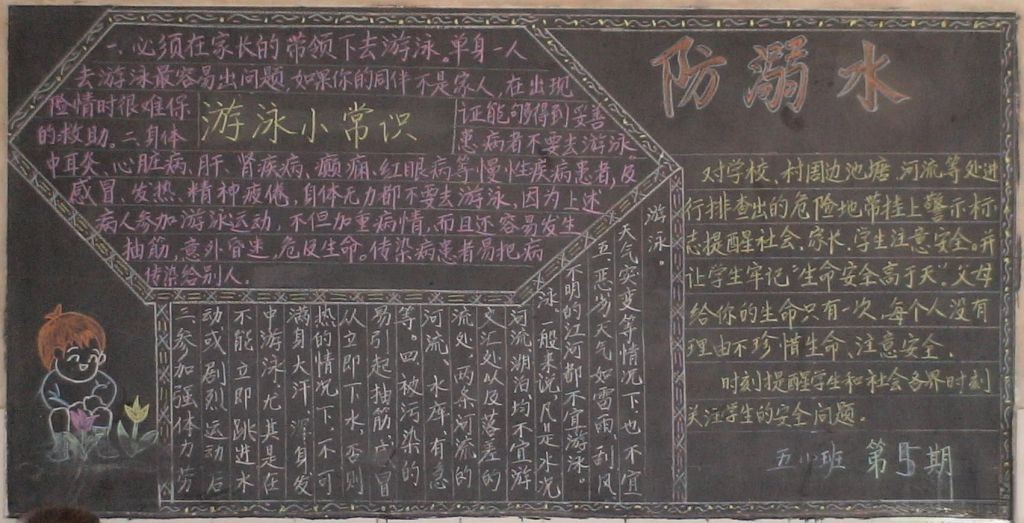 防溺水
游泳小常识
一、必须在家长的带领下去游泳。单身一人
去游泳最容易出问题,如果你的同伴不是家人,在出现
险情时很难保证能够得到妥善
的救助。二、身体患病者不要去游泳。
中耳炎、心脏病、肝、肾疾病、癫痫、红眼病等慢性疾病患者,及
感冒、发热、精神疲倦、身体无力都不要去游泳,因为上述
病人参加游泳运动,不但加重病情,而且还容易发生
抽筋,意外昏迷,危及生命。传染病患者易把病
传染给别人。
三参加强体力劳
动或剧烈运动后
不能立即跳进水
中游泳,尤其是在
满身大汗,浑身发
热的情况下,不可
从立即下水,否则
易引起抽筋或冒
等。四、被污染的
河流、水库,有急
流处,两条河流的
交汇处以及落差的
河流湖泊,均不宜游
泳。一般来说,凡是水况
不明的江河都不宜游泳。
五、恶劣天气如雪雨刮风
天气突变等情况下,也不宜
游泳。
对学校、村周边池塘、河流等处进
行排查出的危险地带挂上警示标
志提醒社会、家长、学生注意安全。并
让学生牢记“生命安全高于天”。父母
给你的生命只有一次,每个人没有
理由不珍惜生命、注意安全。
时刻提醒学生和社会各界时刻
关注学生的安全问题。
五小班 第5期